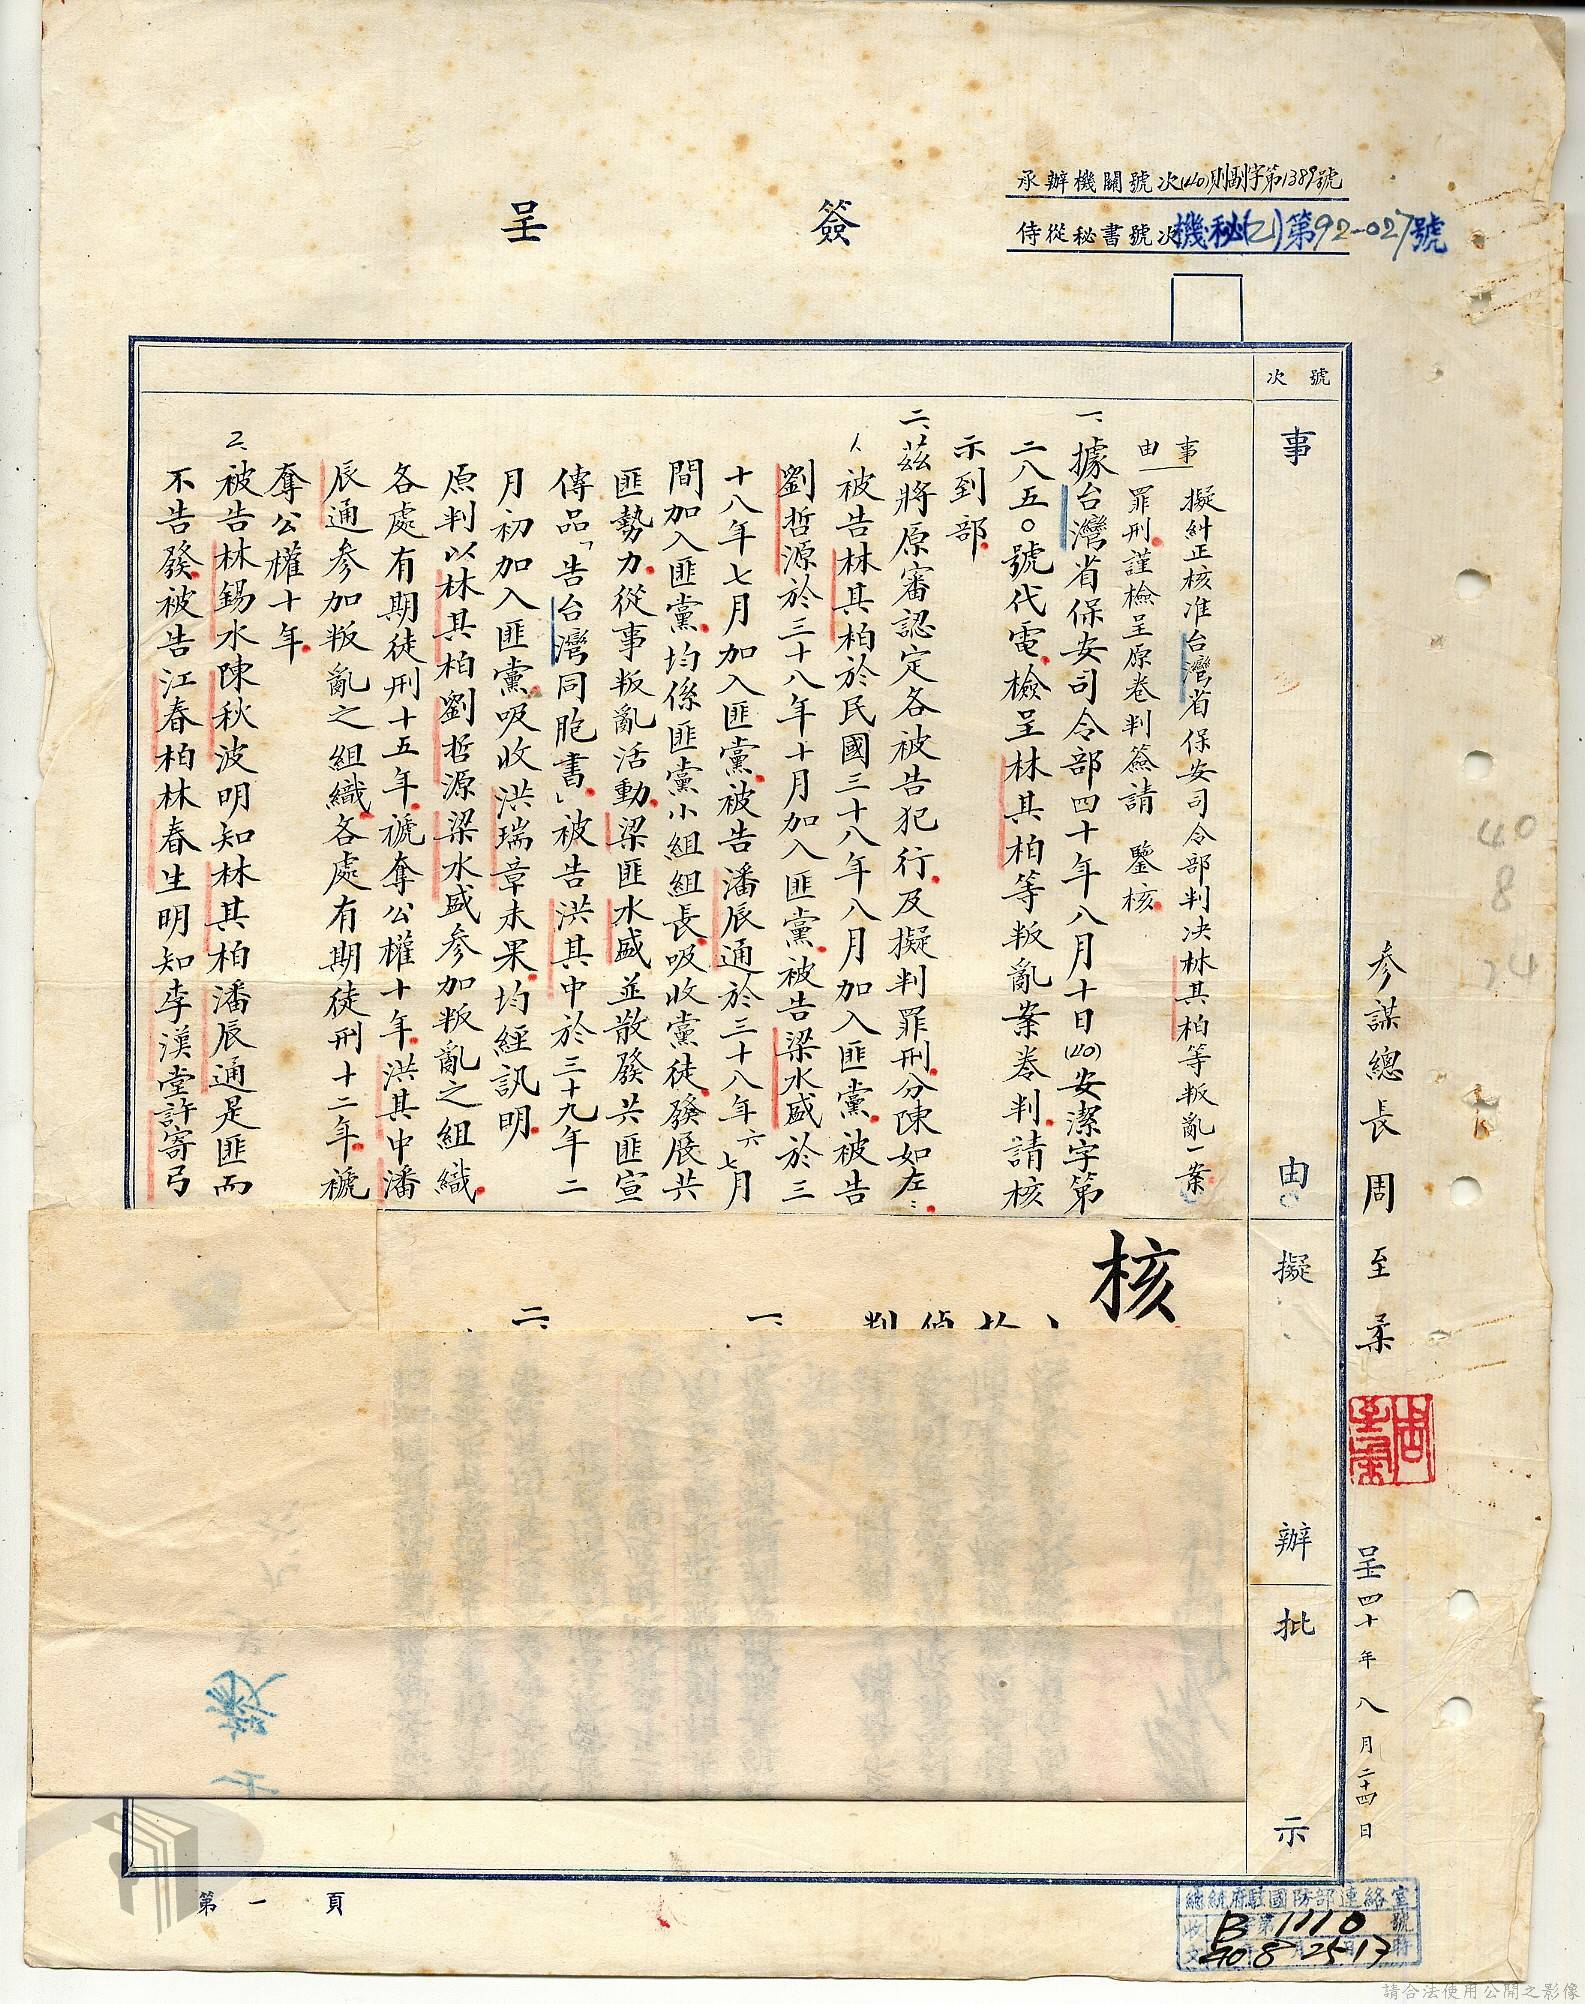 承辦機關號次(40)則副字第1389號
侍從秘書號次機秘(乙)第92-027號
簽呈
號次
事由
擬辦
批示
參謀總長周至柔
呈四十年八月二十四日
40
8
24
事由
擬糾正核准台灣省保安司令部判決林其柏等叛亂一案
罪刑謹檢呈原卷判簽請 鑒核
一、據台灣省保安司令部四十年八月十日(40)安潔字第
二八五〇號代電檢呈林其柏等叛亂案卷判請核
示到部
二、茲將原審認定各被告犯行及擬判罪刑分陳如左:
1、被告林其柏於民國三十八年八月加入匪黨被告
劉哲源於三十八年十月加入匪黨被告梁水盛於三
十八年七月加入匪黨被告潘辰通於三十八年六七月
間加入匪黨均係匪黨小組組長吸收黨徒發展共
匪勢力從事叛亂活動梁匪水盛並散發共匪宣
傳品「告台灣同胞書」被告洪其中於三十九年二
月初加入匪黨吸收洪瑞章未果均經訊明
原判以林其柏劉哲源梁水盛參加叛亂之組織
各處有期徒刑十五年褫奪公權十年洪其中潘
辰通參加叛亂之組織各處有期徒刑十二年褫
奪公權十年
2、被告林錫水陳秋波明知林其柏潘辰通是匪而
不告發被告江春柏林春生明知李漢堂許寄弓
核
一、
二、
第一頁
總統府駐國防部連絡室
收文 B 第1110號
40 8 25 13時
請合法使用公開之影像